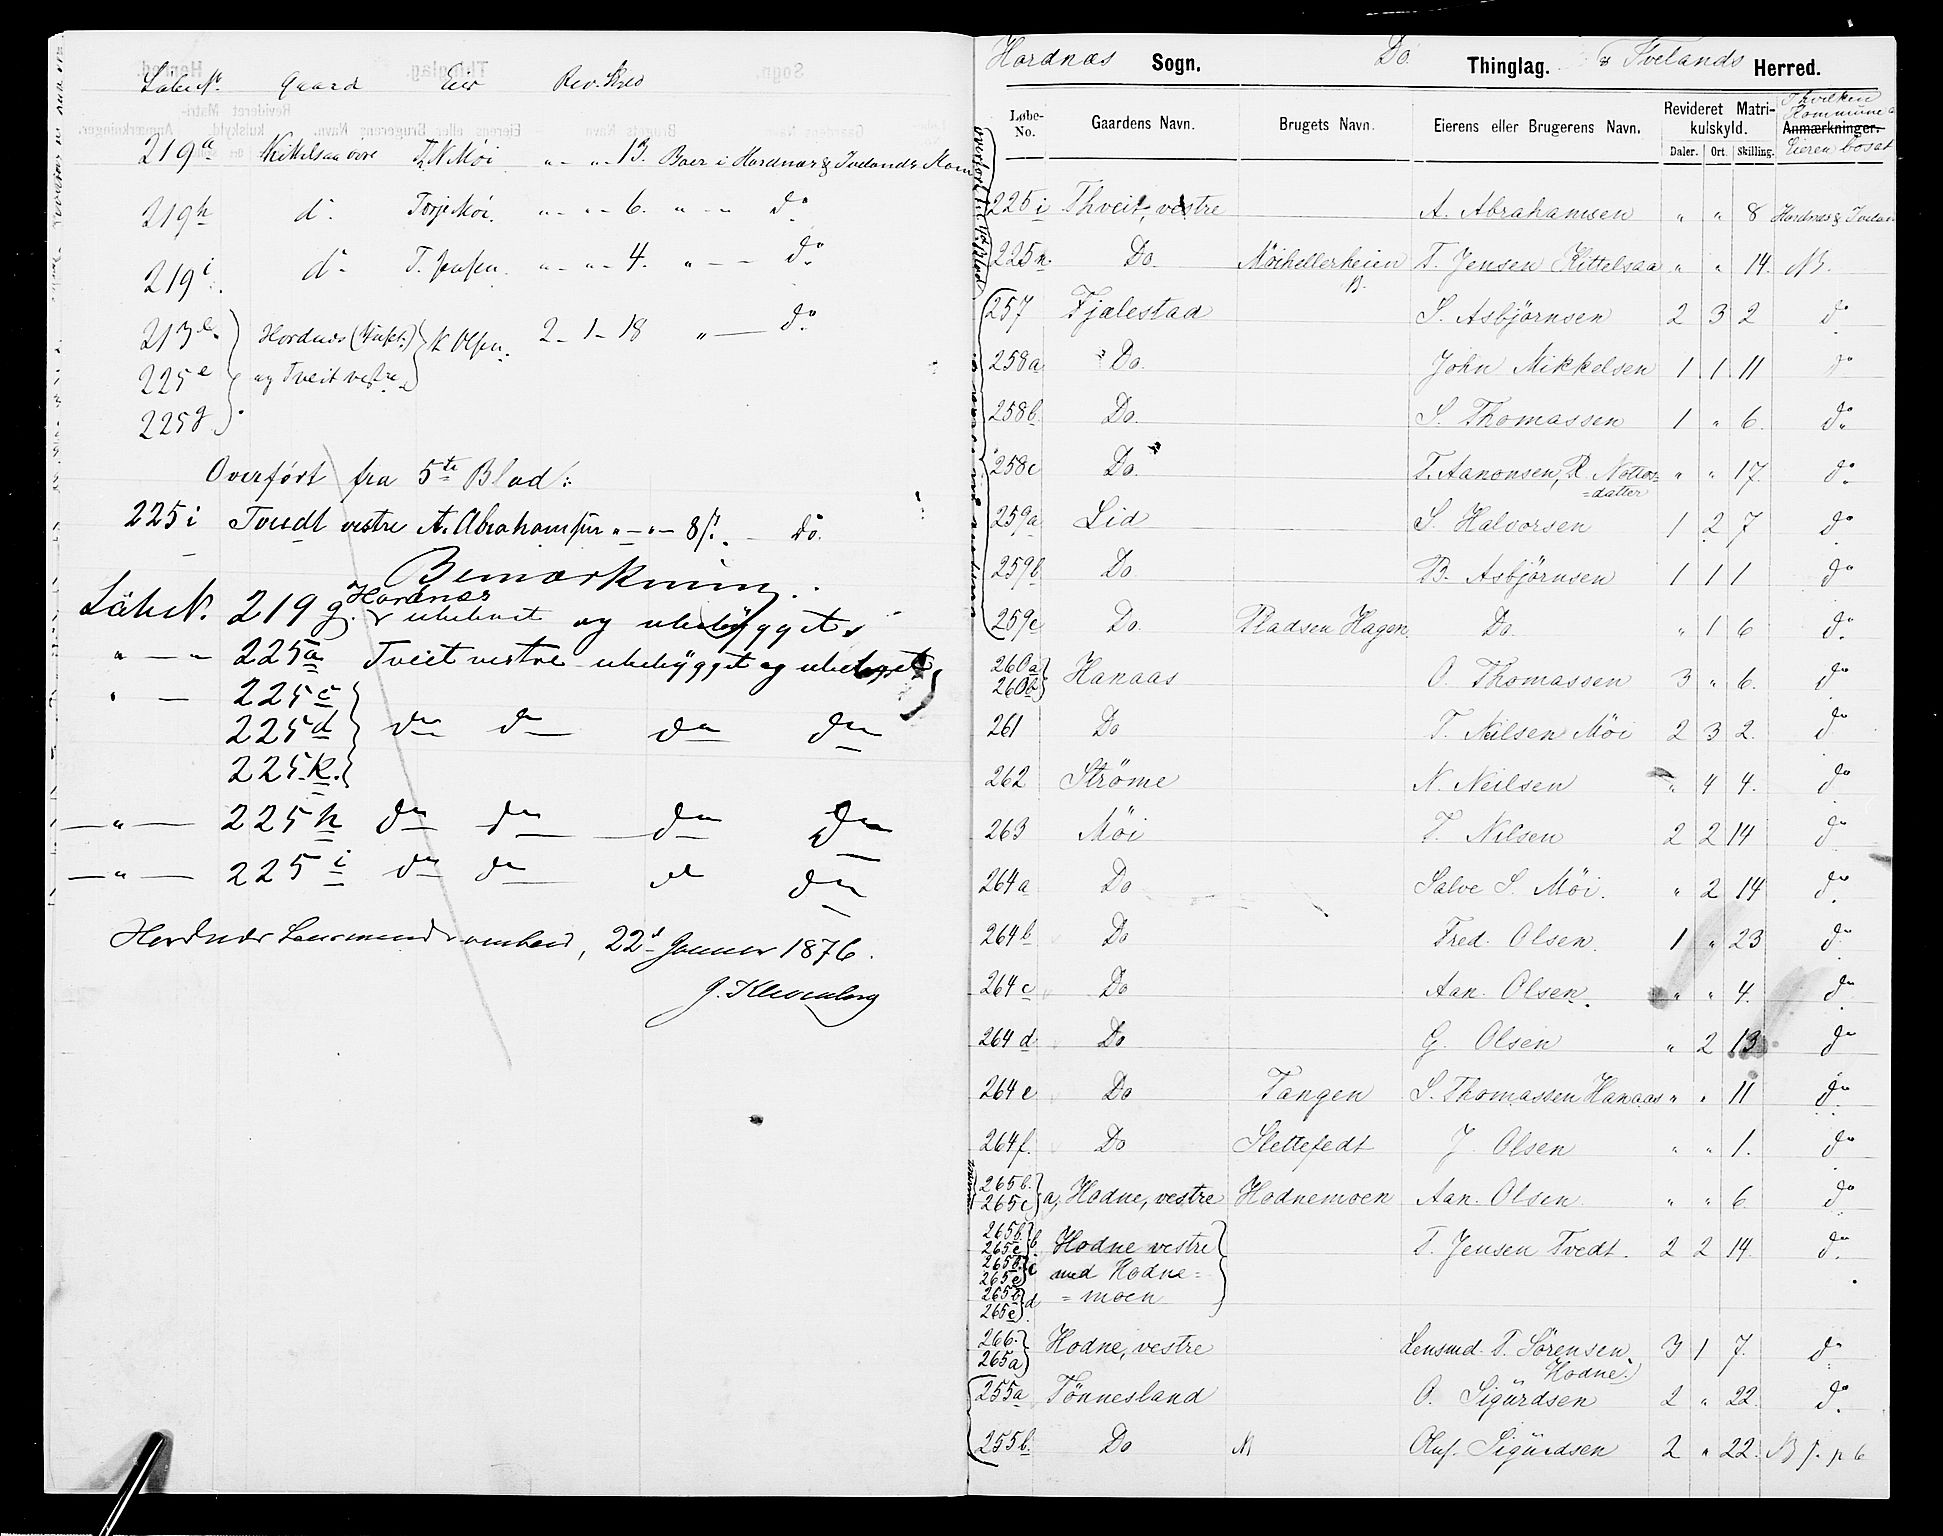 Løbe No. Gaard Eier Rev. Skyld
219a Kittelsaa øvre T. N. Møi " - " - 13. Boer i Hordnæs & Ivelands Kom
219h do Torje Møi " - " - 6. " - " do
219i do T. Jensen " - " - 4. " - - do
213b Hordnæs K. Olsen. 2 - 1 - 18 " - do
225e og Tveit vestre
225g
Overført fra 5te Blad:
225i Tvedt vestre A. Abrahamsen " - " - 8 ß. - Do.
Bemærkning.
Hordnæs
Løbe No. 219g. ubeboet og ubebygget,
" - " 225a Tveit vestre ubebygget og ubeboet
" - 225c
225d do do do do
225k.
- " - 225h do do do do
- " - 225i do do do do
Hordnæs Lensmandsombud, 22d Januar 1876.
J. Klevenberg
Hordnæs Sogn. Do. Thinglag. & Ivelands Herred.
Løbe-No. Gaardens Navn. Brugets Navn. Eierens eller Brugerens Navn. Revideret Matrikulskyld. Anmærkninger.
I hvilken Kommune Eieren bosat
Daler. Ort. Skilling.
225i Thveit, vestre A. Abrahamsen " " 8 Hordnæs & Iveland
225n. Do. Møihellerheien T. Jensen Kittelsaa " " 14. NB.
257 Fjalestad S. Asbjørnsen 2 3 2 do
258a Do. John Mikkelsen 1 1 11 do
258b. Do. S. Thomassen 1 " 6. do
258c Do. T. Aanonsen, R. Nottos= " " 17. do
=datter
259a Lid S. Halvorsen 1 2 7 do
259b Do. B. Asbjørnsen 1 1 1 do
259c Do. Pladsen Hagen Do. " 1 6 do
260a
260b Hanaas O. Thomassen 3 " 6. do
261 Do T. Nilsen Møi 2 3 2. do
262 Strøme N. Neilsen " 4 4. do
263 Møi T. Nilsen 2 2 14 do
264a Do Salve S. Møi. " 2 14 do
264b Do Fred. Olsen. 1 " 23 do
264c Do Aan. Olsen. " " 4. do
264d Do G. Olsen " 2 13 do
264e Do Tangen S. Thomassen Hanaas " " 11 do
264f. Do Slettefedt J. Olsen " " 1. do
265b.
265c a, Hodne, vestre Hodnemoen Aan. Olsen " " 6 do
265b
265c b. Hodne vestre T. Jensen Tvedt. 2 2 14. do
265b
265c c med Hodne=
265b
265c d =moen
266.
265a Hodne, vestre Lensmd. T. Sørensen 3 1 7. do
Hodne.
255a Tønnesland O. Sigurdsen 2 " 22. do
255b. Do Oluf. Sigurdsen 2 " 22. NB